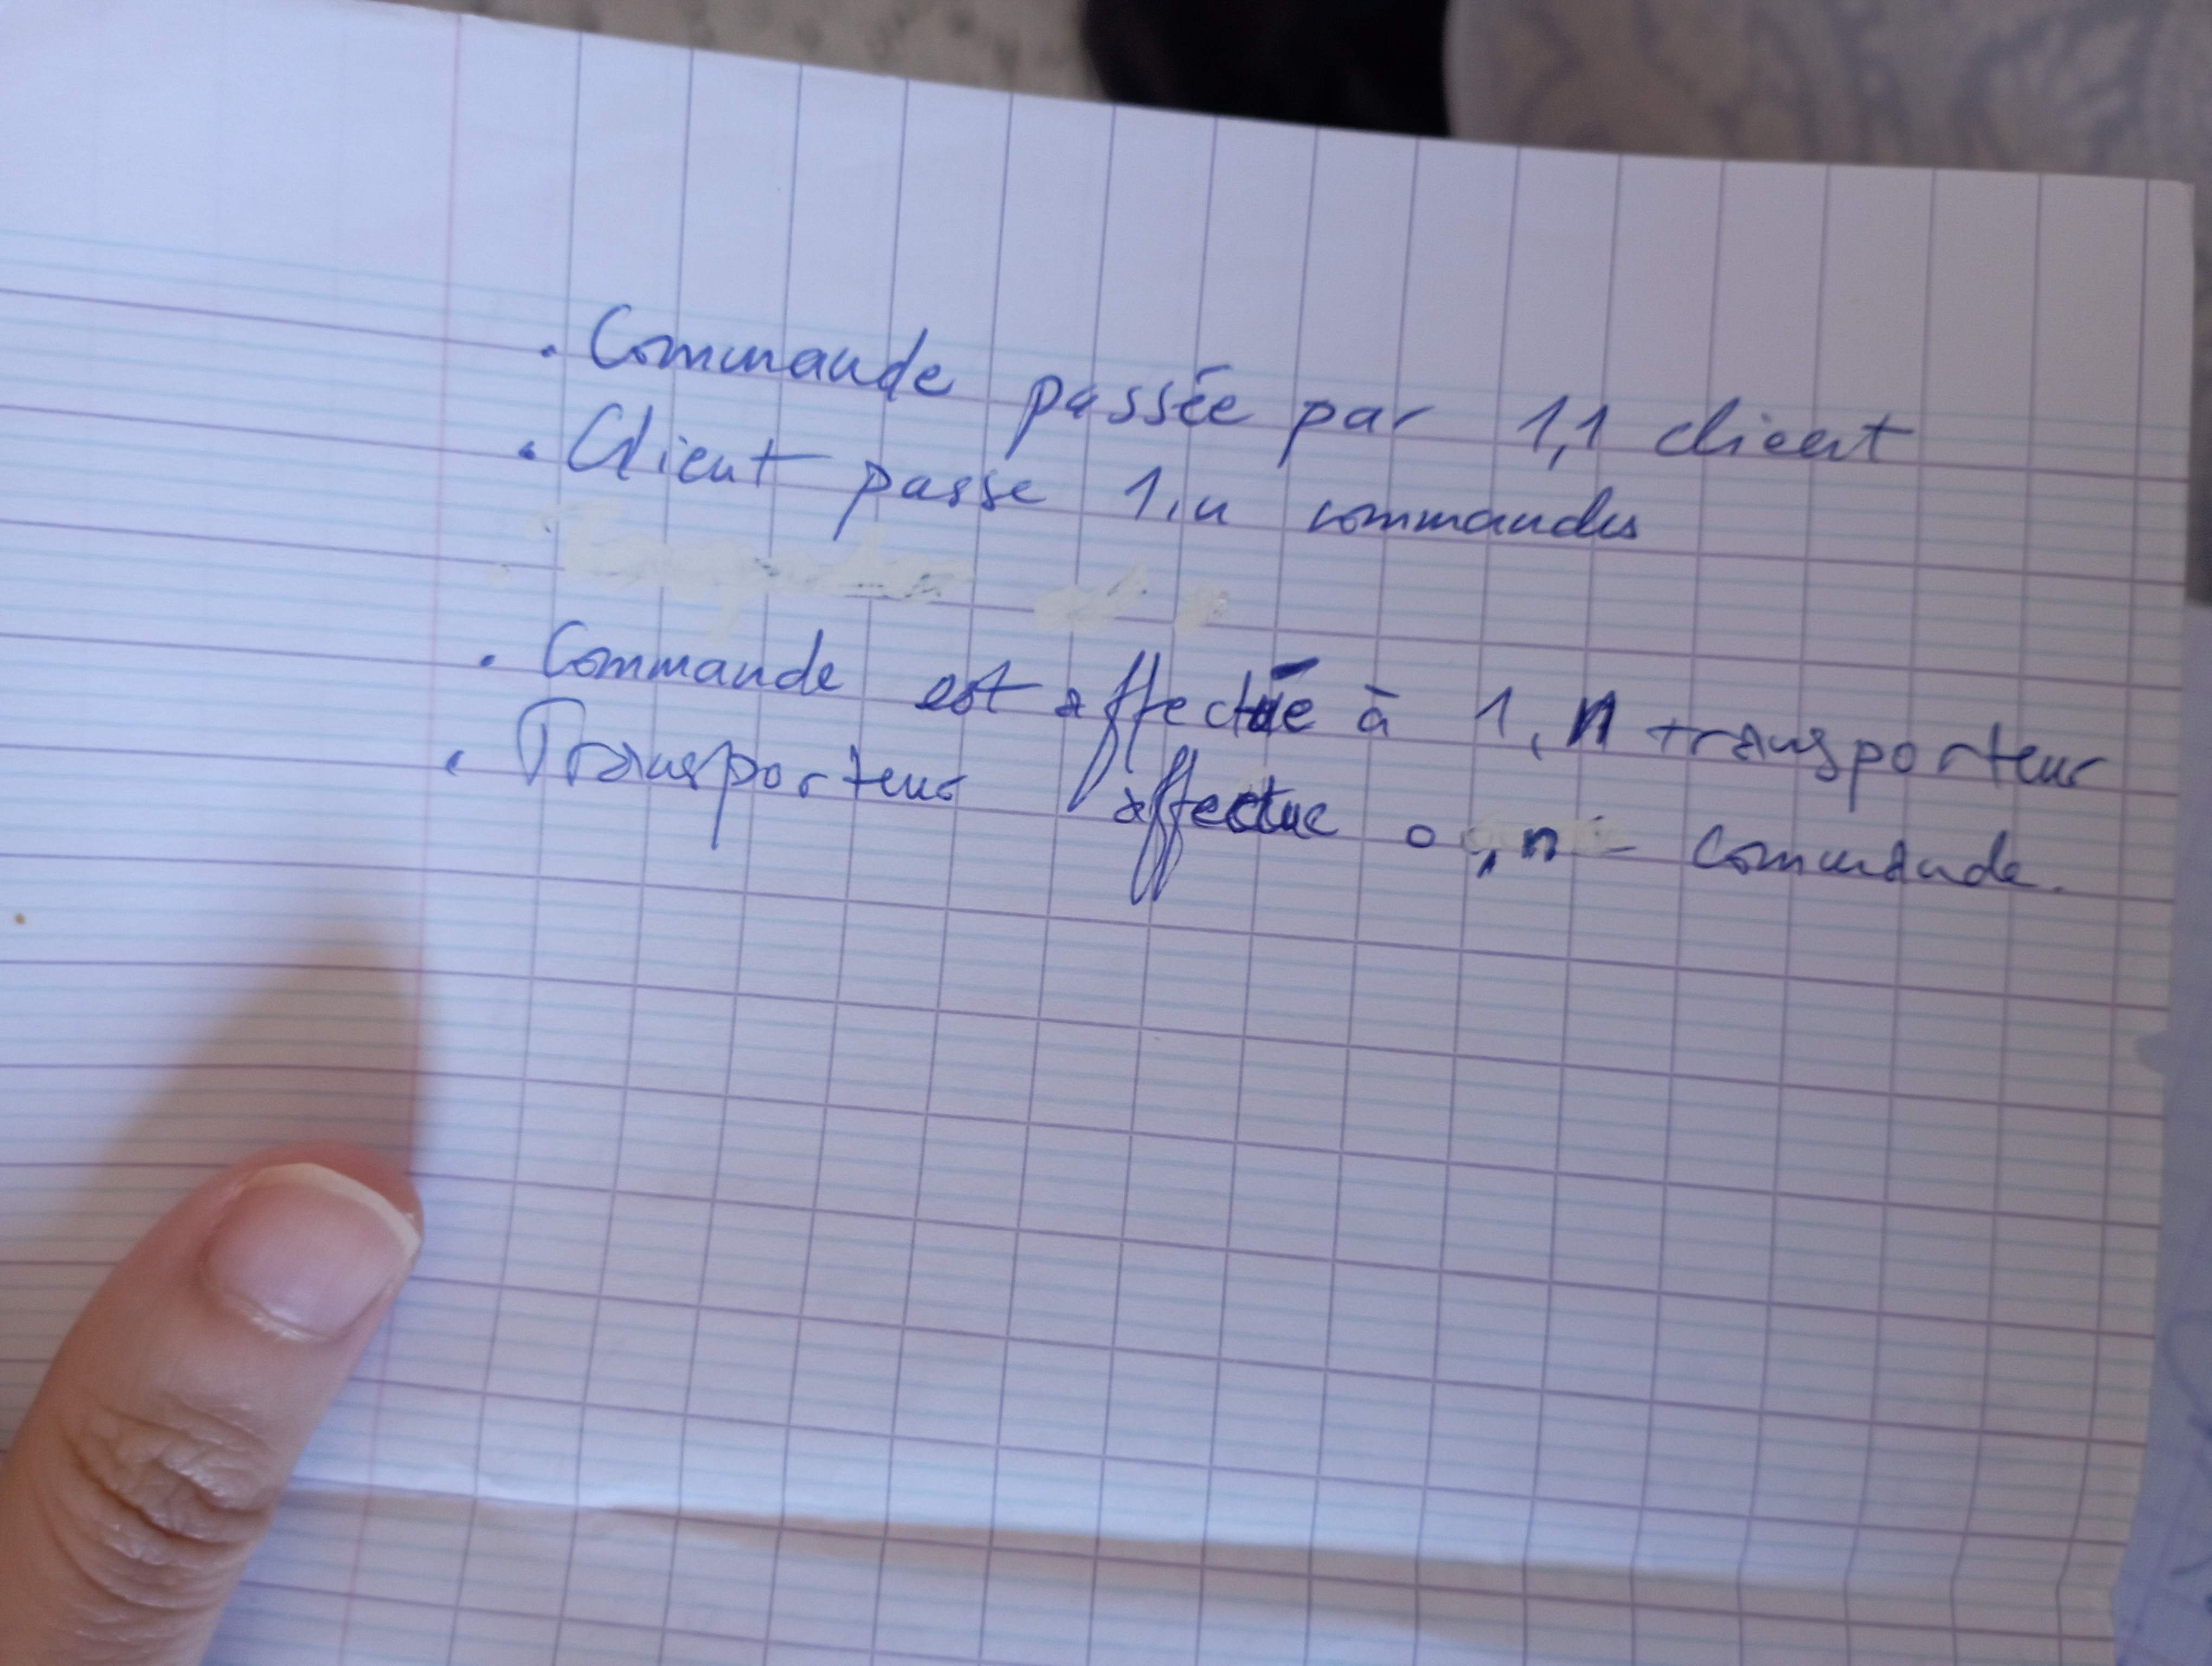 . Commande passée par 1,1 client
. Client passe 1,n commandes
. Commande est affectée à 1,n transporteur
. Transporteur affectue 0,n - Commande.